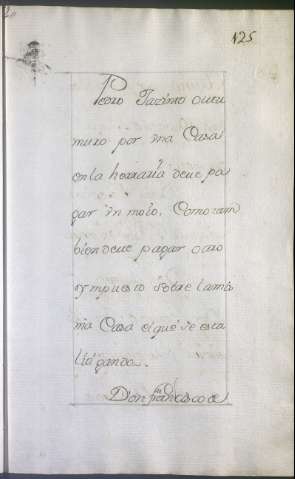 125
Pedro Jazinto
muro por vna Casa
en la herraria deue pa
gar vn moio. Como tam
bien deue pagar otro
ympuesto sobre lamis
ma Casa el que se esta
litigando.
Don francisco de